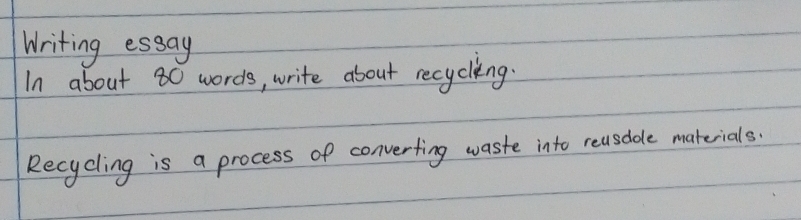 Writing essay
In about 80 words, write about recycling.
Recycling is a process of converting waste into reusdole materials.